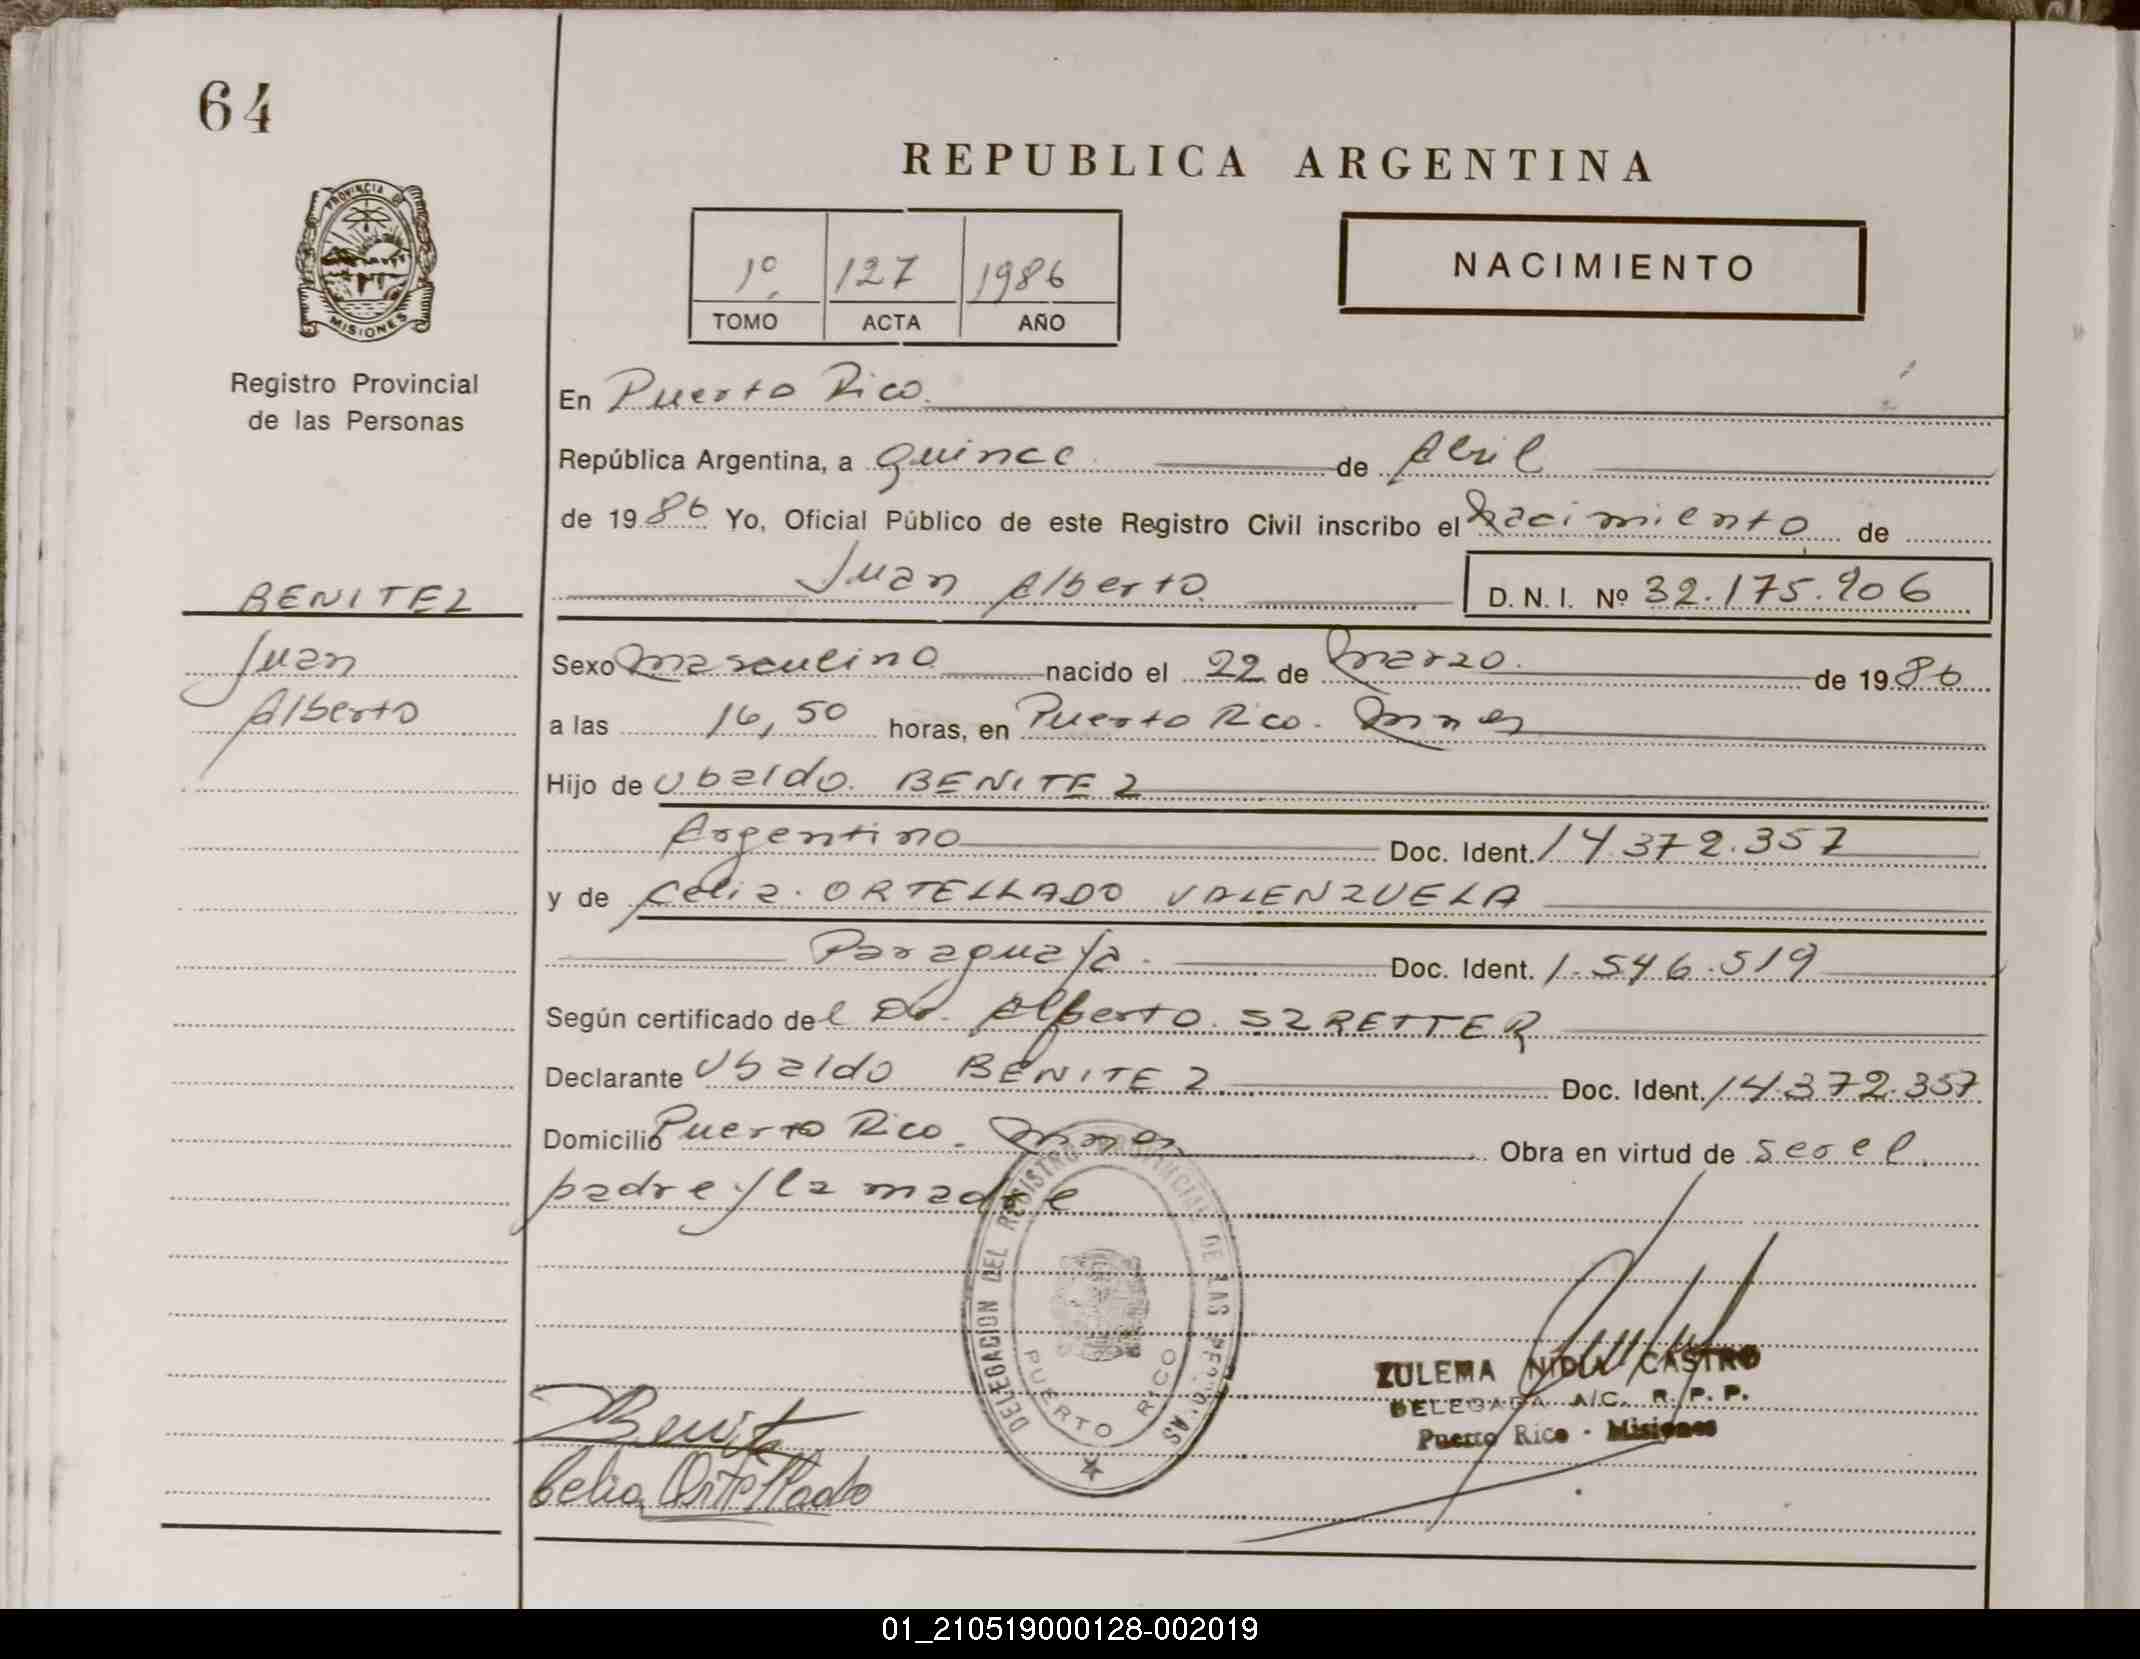 64
REPUBLICA ARGENTINA
PROVINCIA DE
MISIONES
1º 127 1986
TOMO ACTA AÑO
NACIMIENTO
Registro Provincial
de las Personas
En Puerto Rico.
República Argentina, a quince de Abril
de 1986 Yo, Oficial Público de este Registro Civil inscribo el Nacimiento de
Juan Alberto D.N.I. Nº 32.175.906
BENITEZ
Juan
Alberto
Sexo Masculino nacido el 22 de Marzo. de 1986
a las 16,50 horas, en Puerto Rico. Mnes
Hijo de Ubaldo. BENITEZ
Argentino Doc. Ident. 14.372.357
y de Celia. ORTELLADO VALENZUELA
Paraguaya. Doc. Ident. 1.546.519
Según certificado del Dr. Alberto. SZRETTER
Declarante Ubaldo BENITEZ Doc. Ident. 14.372.357
Domicilio Puerto Rico. Mnes Obra en virtud de ser el
padre y la madre
DELEGACION DEL REGISTRO PROVINCIAL DE LAS PERSONAS
PUERTO RICO
ZULEMA NIDIA CASTRO
DELEGADA A/C. R. P. P.
Puerto Rico - Misiones
Benitez
Celia Ortellado
01_210519000128-002019